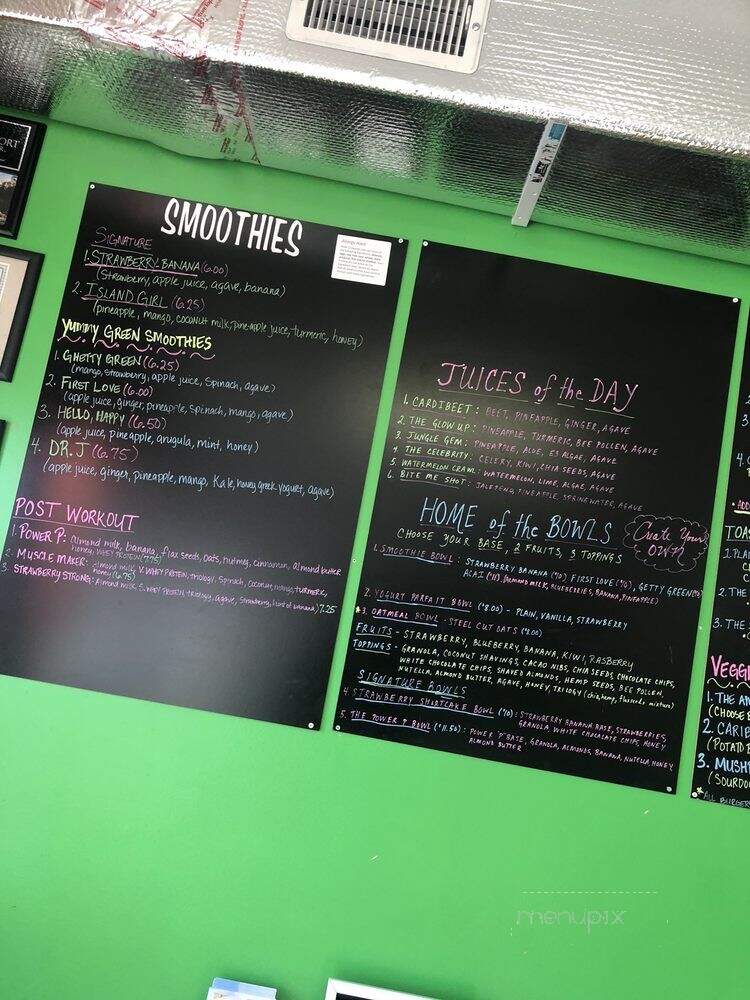 ORT
SMOOTHIES
SIGNATURE
Allergy Alert
1. STRAWBERRY BANANA (6.00)
(Strawberry, apple juice, agave, banana)
2. ISLAND GIRL (6.25)
(pineapple, mango, coconut milk, pineapple juice, turmeric, honey)
Yummy GREEN SMOOTHIES
1. GHETTY GREEN (6.25)
(mango, strawberry, apple juice, spinach, agave)
2. FIRST LOVE (6.00)
(apple juice, ginger, pineapple, spinach, mango, agave)
3. HELLO, HAPPY (6.50)
(apple juice, pineapple, arugula, mint, honey)
4. DR. J (6.75)
(apple juice, ginger, pineapple, mango, Kale, honey, greek yogurt, agave)
POST WORKOUT
1. POWER P: almond milk, banana, flax seeds, oats, nutmeg, cinnamon, almond butter
honey, WHEY PROTEIN (7.75)
2. MUSCLE MAKER: almond milk, V. WHEY PROTEIN, trilogy, spinach, coconut, mango, turmeric,
honey (6.75)
3. STRAWBERRY STRONG: Almond milk, S. WHEY PROTEIN, trilogy, agave, Strawberry, banana) 7.25
JUICES of the DAY
1. CARDIBEET: BEET, PINEAPPLE, GINGER, AGAVE
2. THE GLOW UP: PINEAPPLE, TURMERIC, BEE POLLEN, AGAVE
3. JUNGLE GEM: PINEAPPLE, ALOE, E3 ALGAE, AGAVE
4. THE CELEBRITY: CELERY, KIWI, CHIA SEEDS, AGAVE
5. WATERMELON CRAWL: WATERMELON, LIME, ALGAE, AGAVE
6. BITE ME SHOT: JALEPENO, PINEAPPLE, SPRING WATER, AGAVE
HOME of the BOWLS
Create Your
OWN
CHOOSE YOUR BASE, 2 FRUITS, 3 TOPPINGS
1. SMOOTHIE BOWL: STRAWBERRY BANANA ($10) FIRST LOVE ($10), GETTY GREEN ($10)
ACAI ($11) (ALMOND MILK, BLUEBERRIES, BANANA, PINEAPPLE)
2. YOGURT PARFAIT BOWL ($8.00) - PLAIN, VANILLA, STRAWBERRY
3. OATMEAL BOWL - STEEL CUT OATS ($8.00)
FRUITS - STRAWBERRY, BLUEBERRY, BANANA, KIWI, RASBERRY
TOPPINGS - GRANOLA, COCONUT SHAVINGS, CACAO NIBS, CHIA SEEDS, CHOCOLATE CHIPS,
WHITE CHOCOLATE CHIPS, SHAVED ALMONDS, HEMP SEEDS, BEE POLLEN,
NUTELLA, ALMOND BUTTER, AGAVE, HONEY, TRILOGY (chia, hemp, flaxseeds mixture)
SIGNATURE BOWLS
4. STRAWBERRY SHORTCAKE BOWL ($10): STRAWBERRY BANANA BASE, STRAWBERRIES,
GRANOLA, WHITE CHOCOLATE CHIPS, HONEY
5. THE POWER P BOWL ($11.50): POWER 'P' BASE, GRANOLA, ALMONDS, BANANA, NUTELLA, HONEY
ALMOND BUTTER
TOAS
1. PLAI
2. THE
3. THE
VEGGI
1. THE AM
(CHOOSE
2. CARIB
(POTATO B
3. MUSH
(SOURDO
ALL BURGERS
menupix